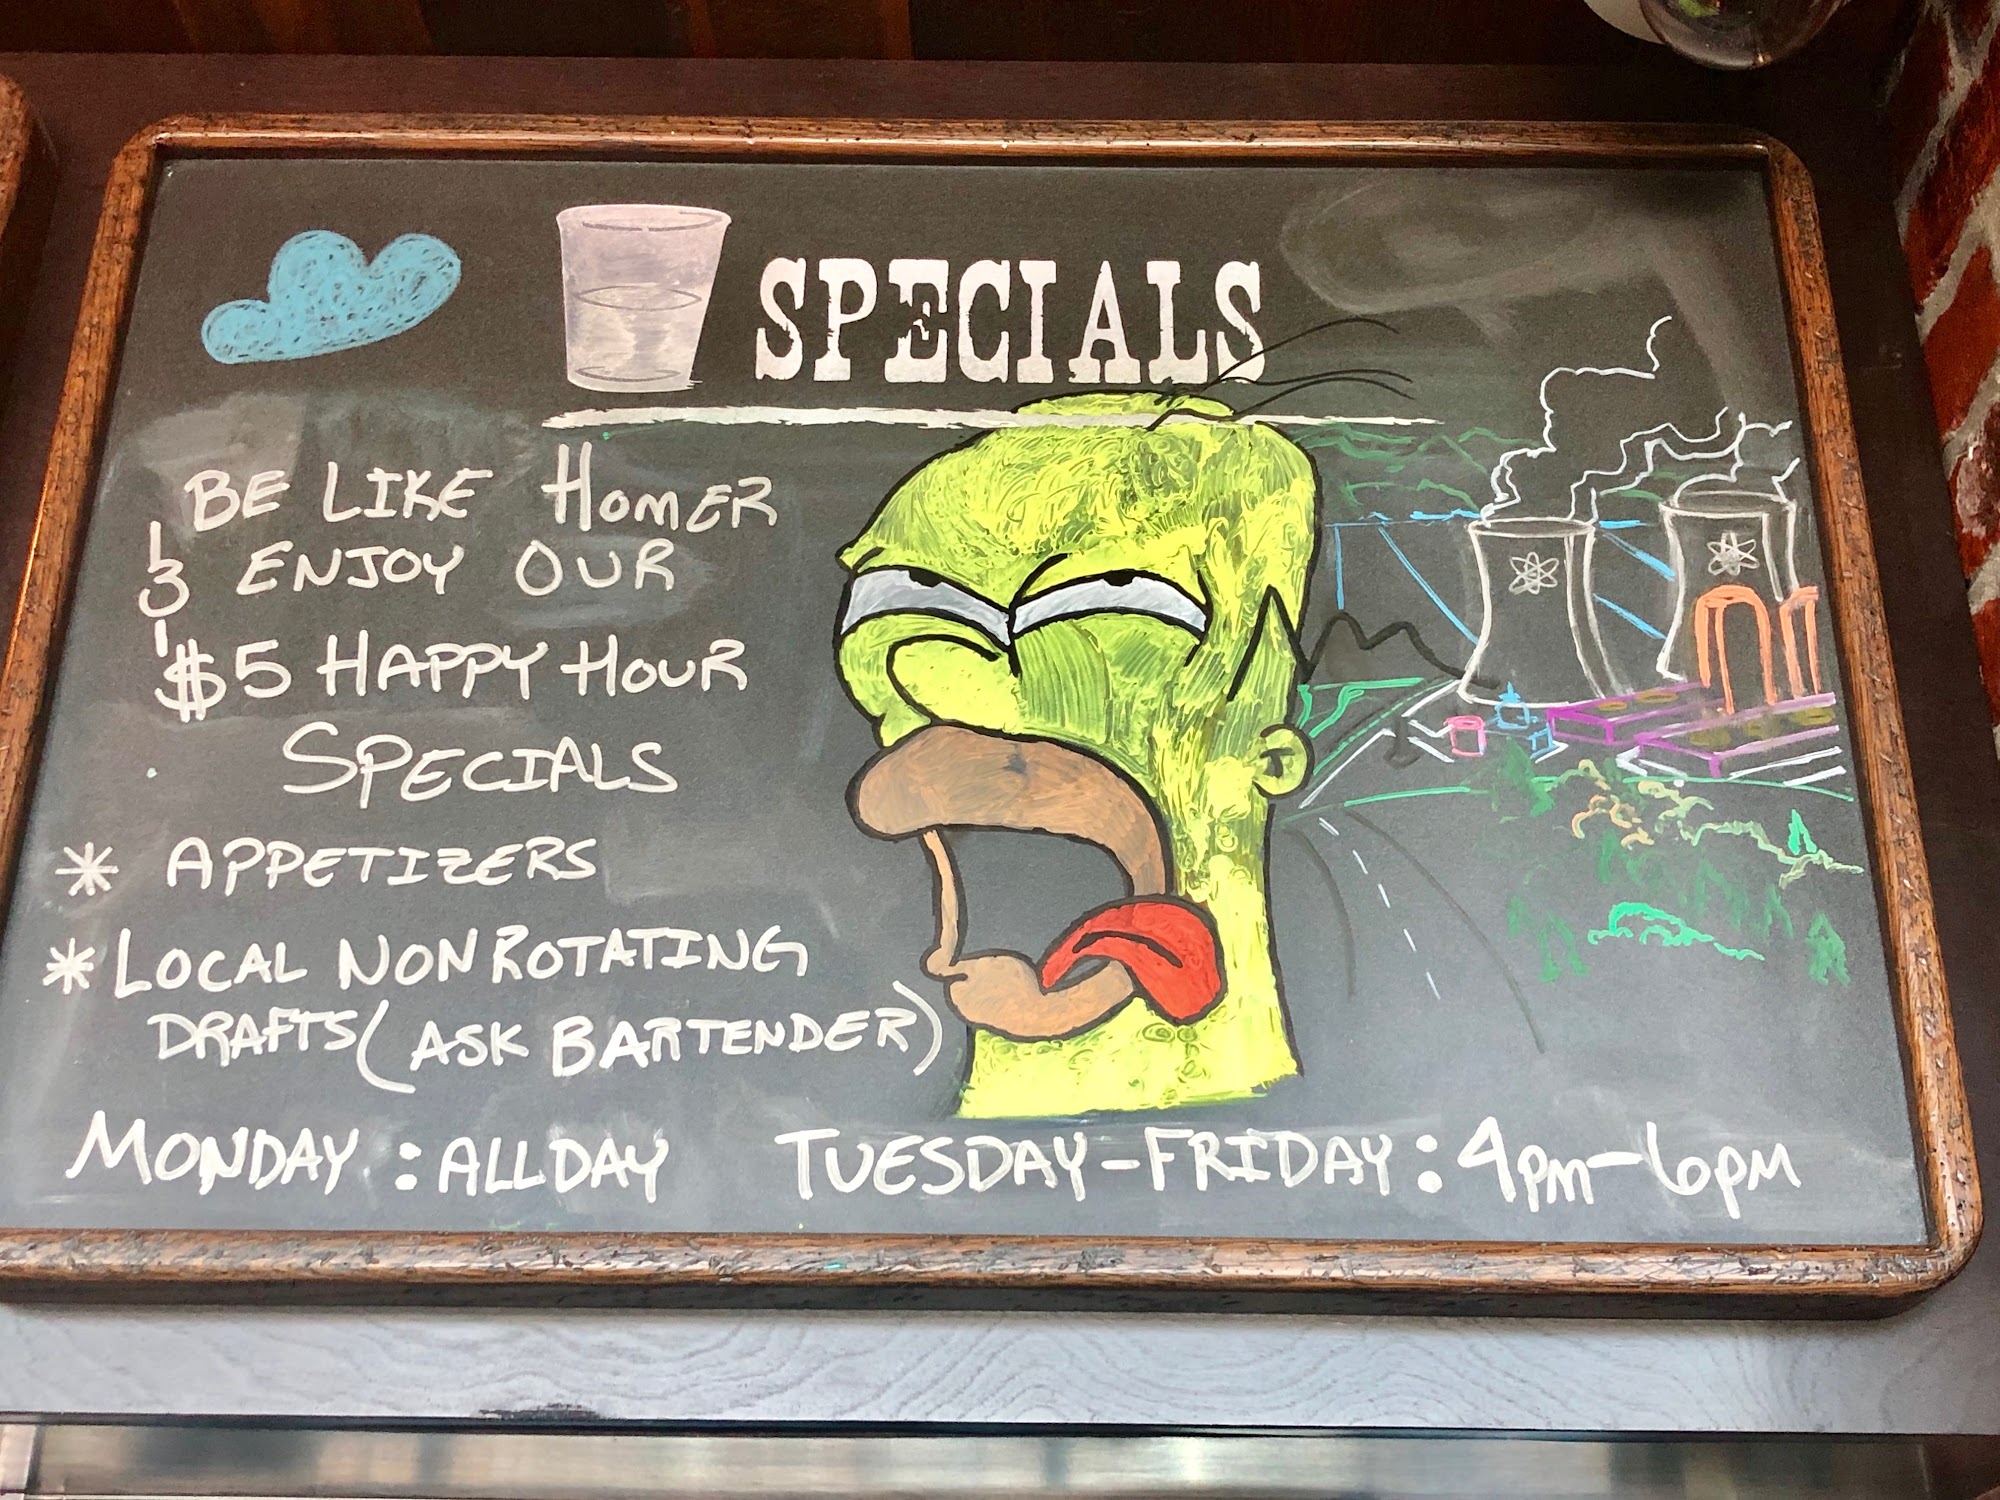 SPECIALS
BE LIKE HOMER
& ENJOY OUR
$5 HAPPY HOUR
SPECIALS
* APPETIZERS
* LOCAL NON ROTATING
DRAFTS (ASK BARTENDER)
MONDAY : ALL DAY TUESDAY-FRIDAY : 4PM-6PM